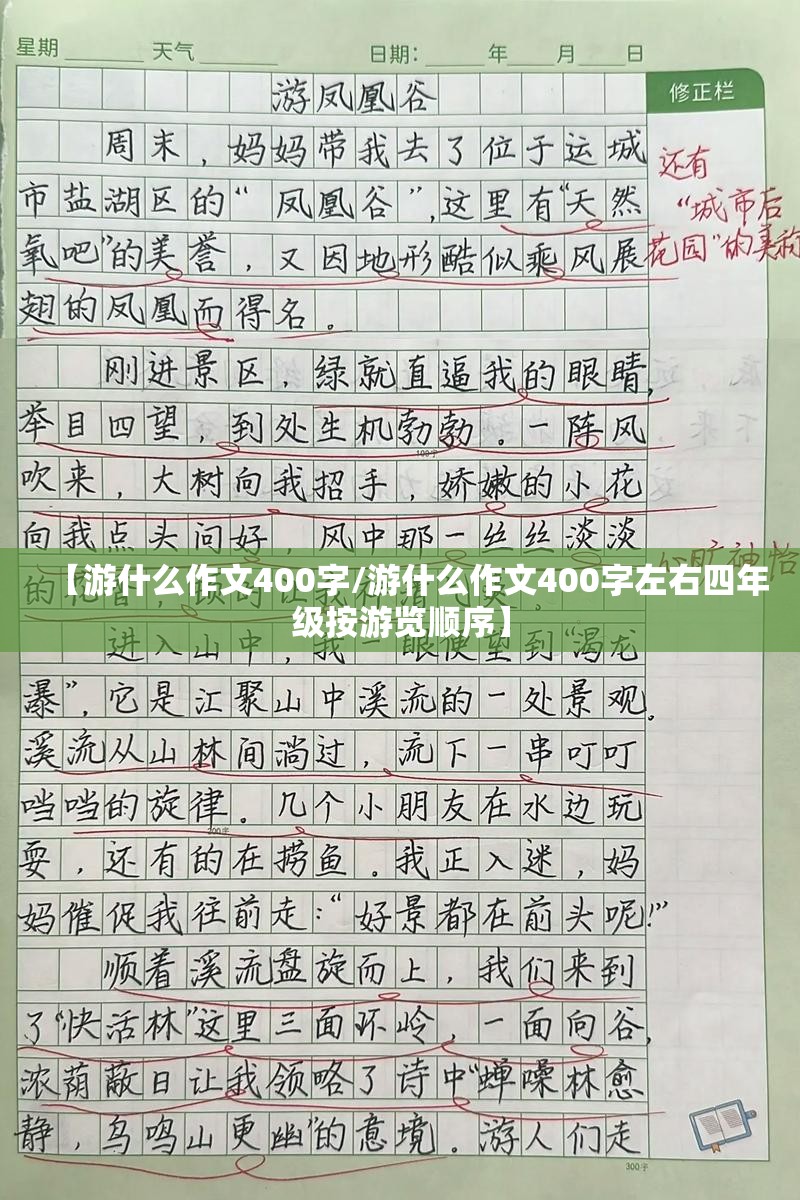 星期 天气 日期: 年 月 日
修正栏
游凤凰谷
周末，妈妈带我去了位于运城
市盐湖区的“凤凰谷”，这里有“天然
氧吧”的美誉，又因地形酷似乘风展
翅的凤凰而得名。
还有
“城市后
花园”的美称
刚进景区，绿就直逼我的眼睛，
举目四望，到处生机勃勃。一阵风
100字
吹来，大树向我招手，娇嫩的小花
向我点头问好，风中那一丝丝淡淡
心旷神怡
【游什么作文400字/游什么作文400字左右四年
级按游览顺序】
进入山中，我一眼便望到“渴龙
瀑”，它是汇聚山中溪流的一处景观。
溪流从山林间淌过，流下一串叮叮
当当的旋律。几个小朋友在水边玩
200字
耍，还有的在捞鱼。我正入迷，妈
妈催促我往前走：“好景都在前头呢！”
顺着溪流盘旋而上，我们来到
了“快活林”这里三面环岭，一面向谷，
浓荫蔽日让我领略了诗中“蝉噪林愈
静，鸟鸣山更幽”的意境。游人们走
300字